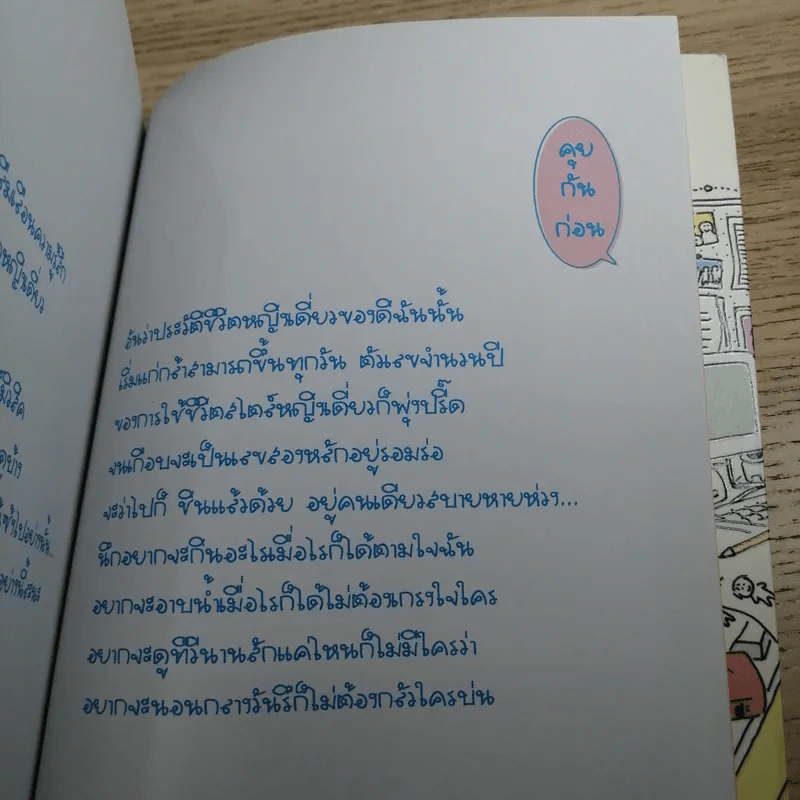 คุย
กัน
ก่อน
อันว่าประวัติชีวิตหญิงเดี่ยวของดิฉันนั้น
เริ่มแก่กล้าสามารถขึ้นทุกวัน ตัวเลขจำนวนปี
ของการใช้ชีวิตสไตล์หญิงเดี่ยวก็พุ่งปรี๊ด
จนเกือบจะเป็นเลขสองหลักอยู่รอมร่อ
จะว่าไปก็ ชินแล้วด้วย อยู่คนเดียวสบายหายห่วง...
นึกอยากจะกินอะไรเมื่อไรก็ได้ตามใจฉัน
อยากจะอาบน้ำเมื่อไรก็ได้ไม่ต้องเกรงใจใคร
อยากจะดูทีวีนานสักแค่ไหนก็ไม่มีใครว่า
อยากจะนอนกลางวันรึก็ไม่ต้องกลัวใครบ่น